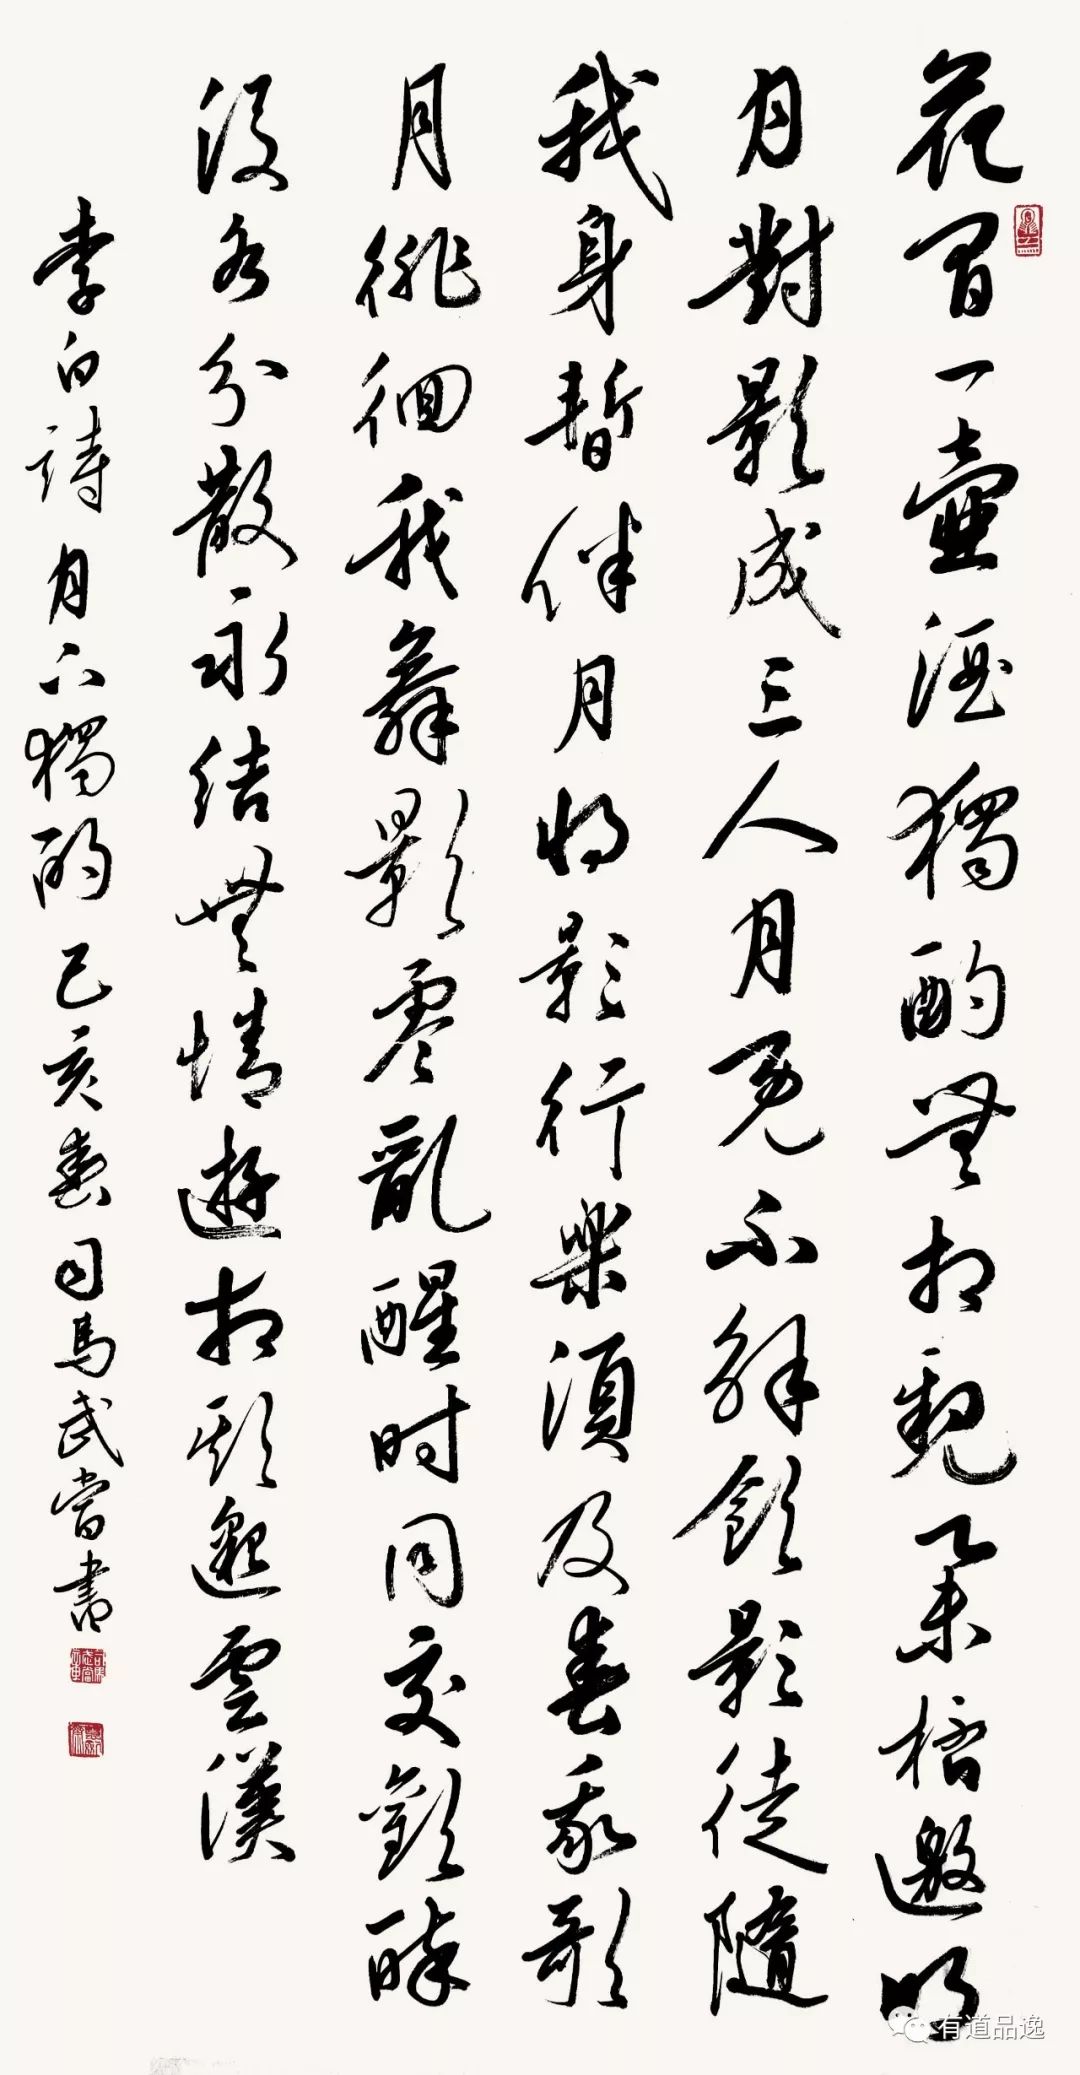 花間一壺酒獨酌無相親舉桮邀明
月對影成三人月既不解飲影徒隨
我身暫伴月將影行樂須及春我歌
月徘徊我舞影零亂醒时同交歡醉
後各分散永結無情遊相期邈雲漢
李白詩 月下獨酌 己亥春司馬武當書
有道品逸